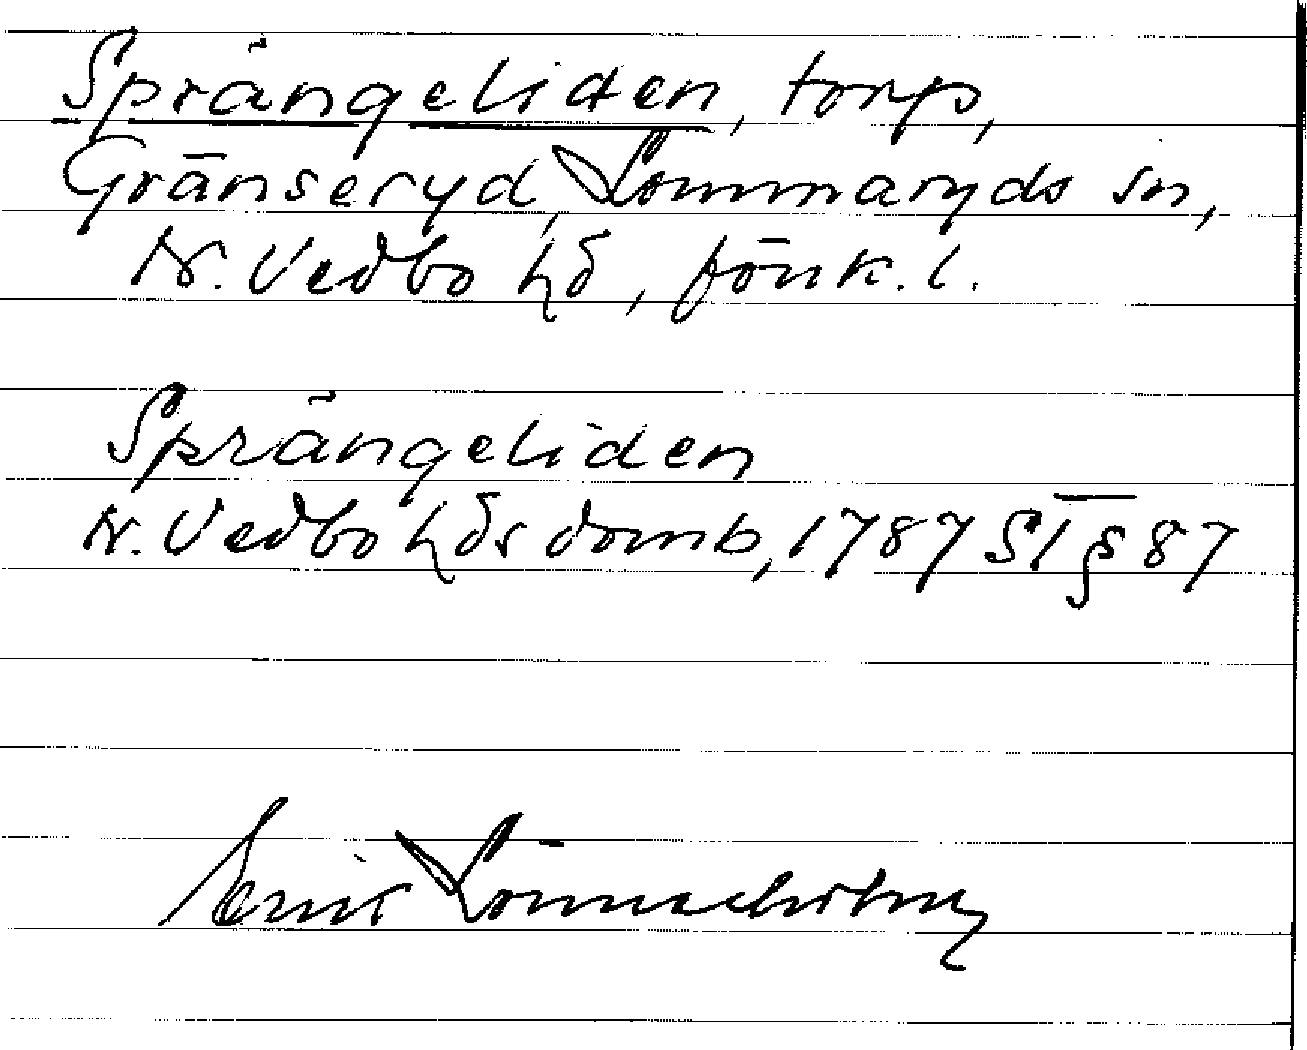 Sprängeliden, torp,
Gränseryd, Lommaryds sn,
N. Vedbo hd, Jönk. l.
Sprängeliden
N. Vedbo hds domb, 1787 S I § 87
Erik Lönnerholm